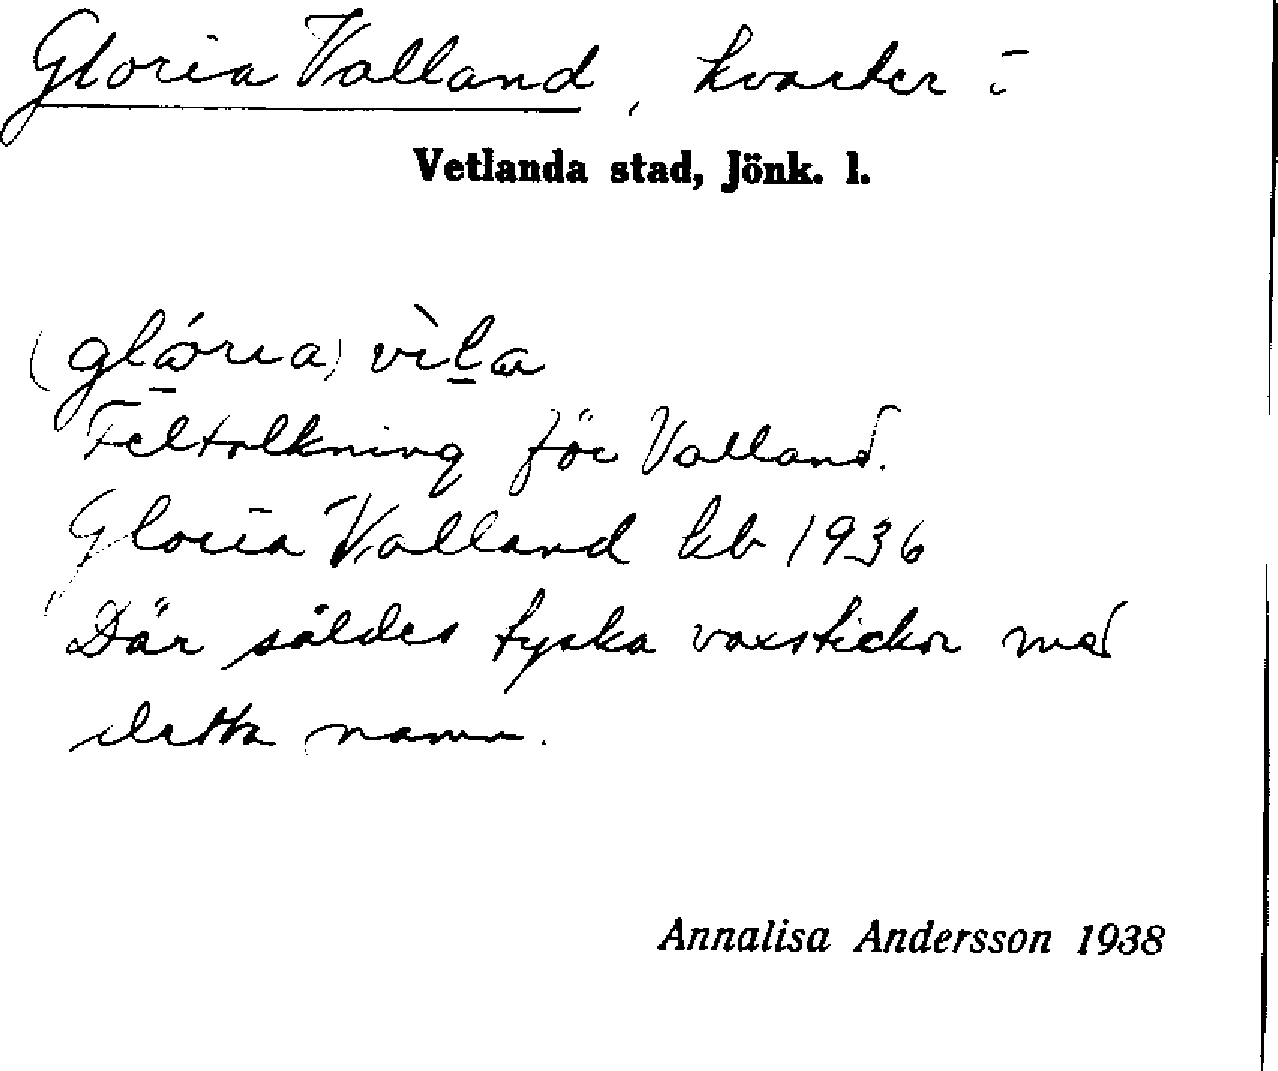 Gloria Valland, kvarter i
Vetlanda stad, Jönk. l.
(glória) vìla
Feltolkning för Valland.
Gloria Valland kb 1936
Där såldes tyska vaxstickor med
detta namn.
Annalisa Andersson 1938